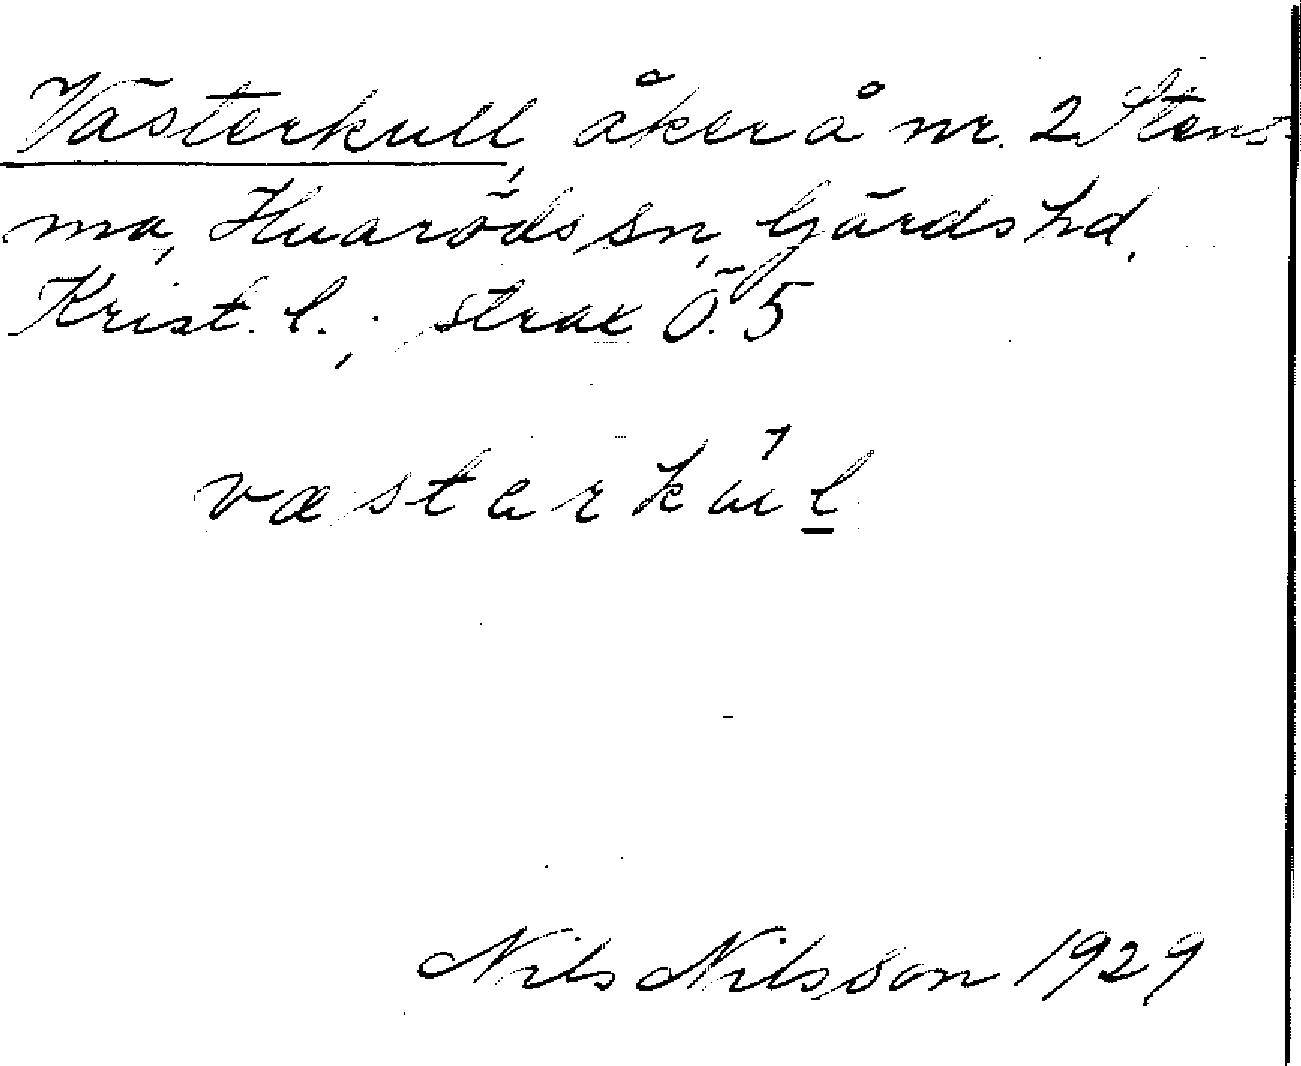 Västerkull, åker å nr. 2 Stens-
ma, Huaröds sn, Gärds hd,
Krist. l.; strax Ö. 5
væstarkúl
Nils Nilsson 1929